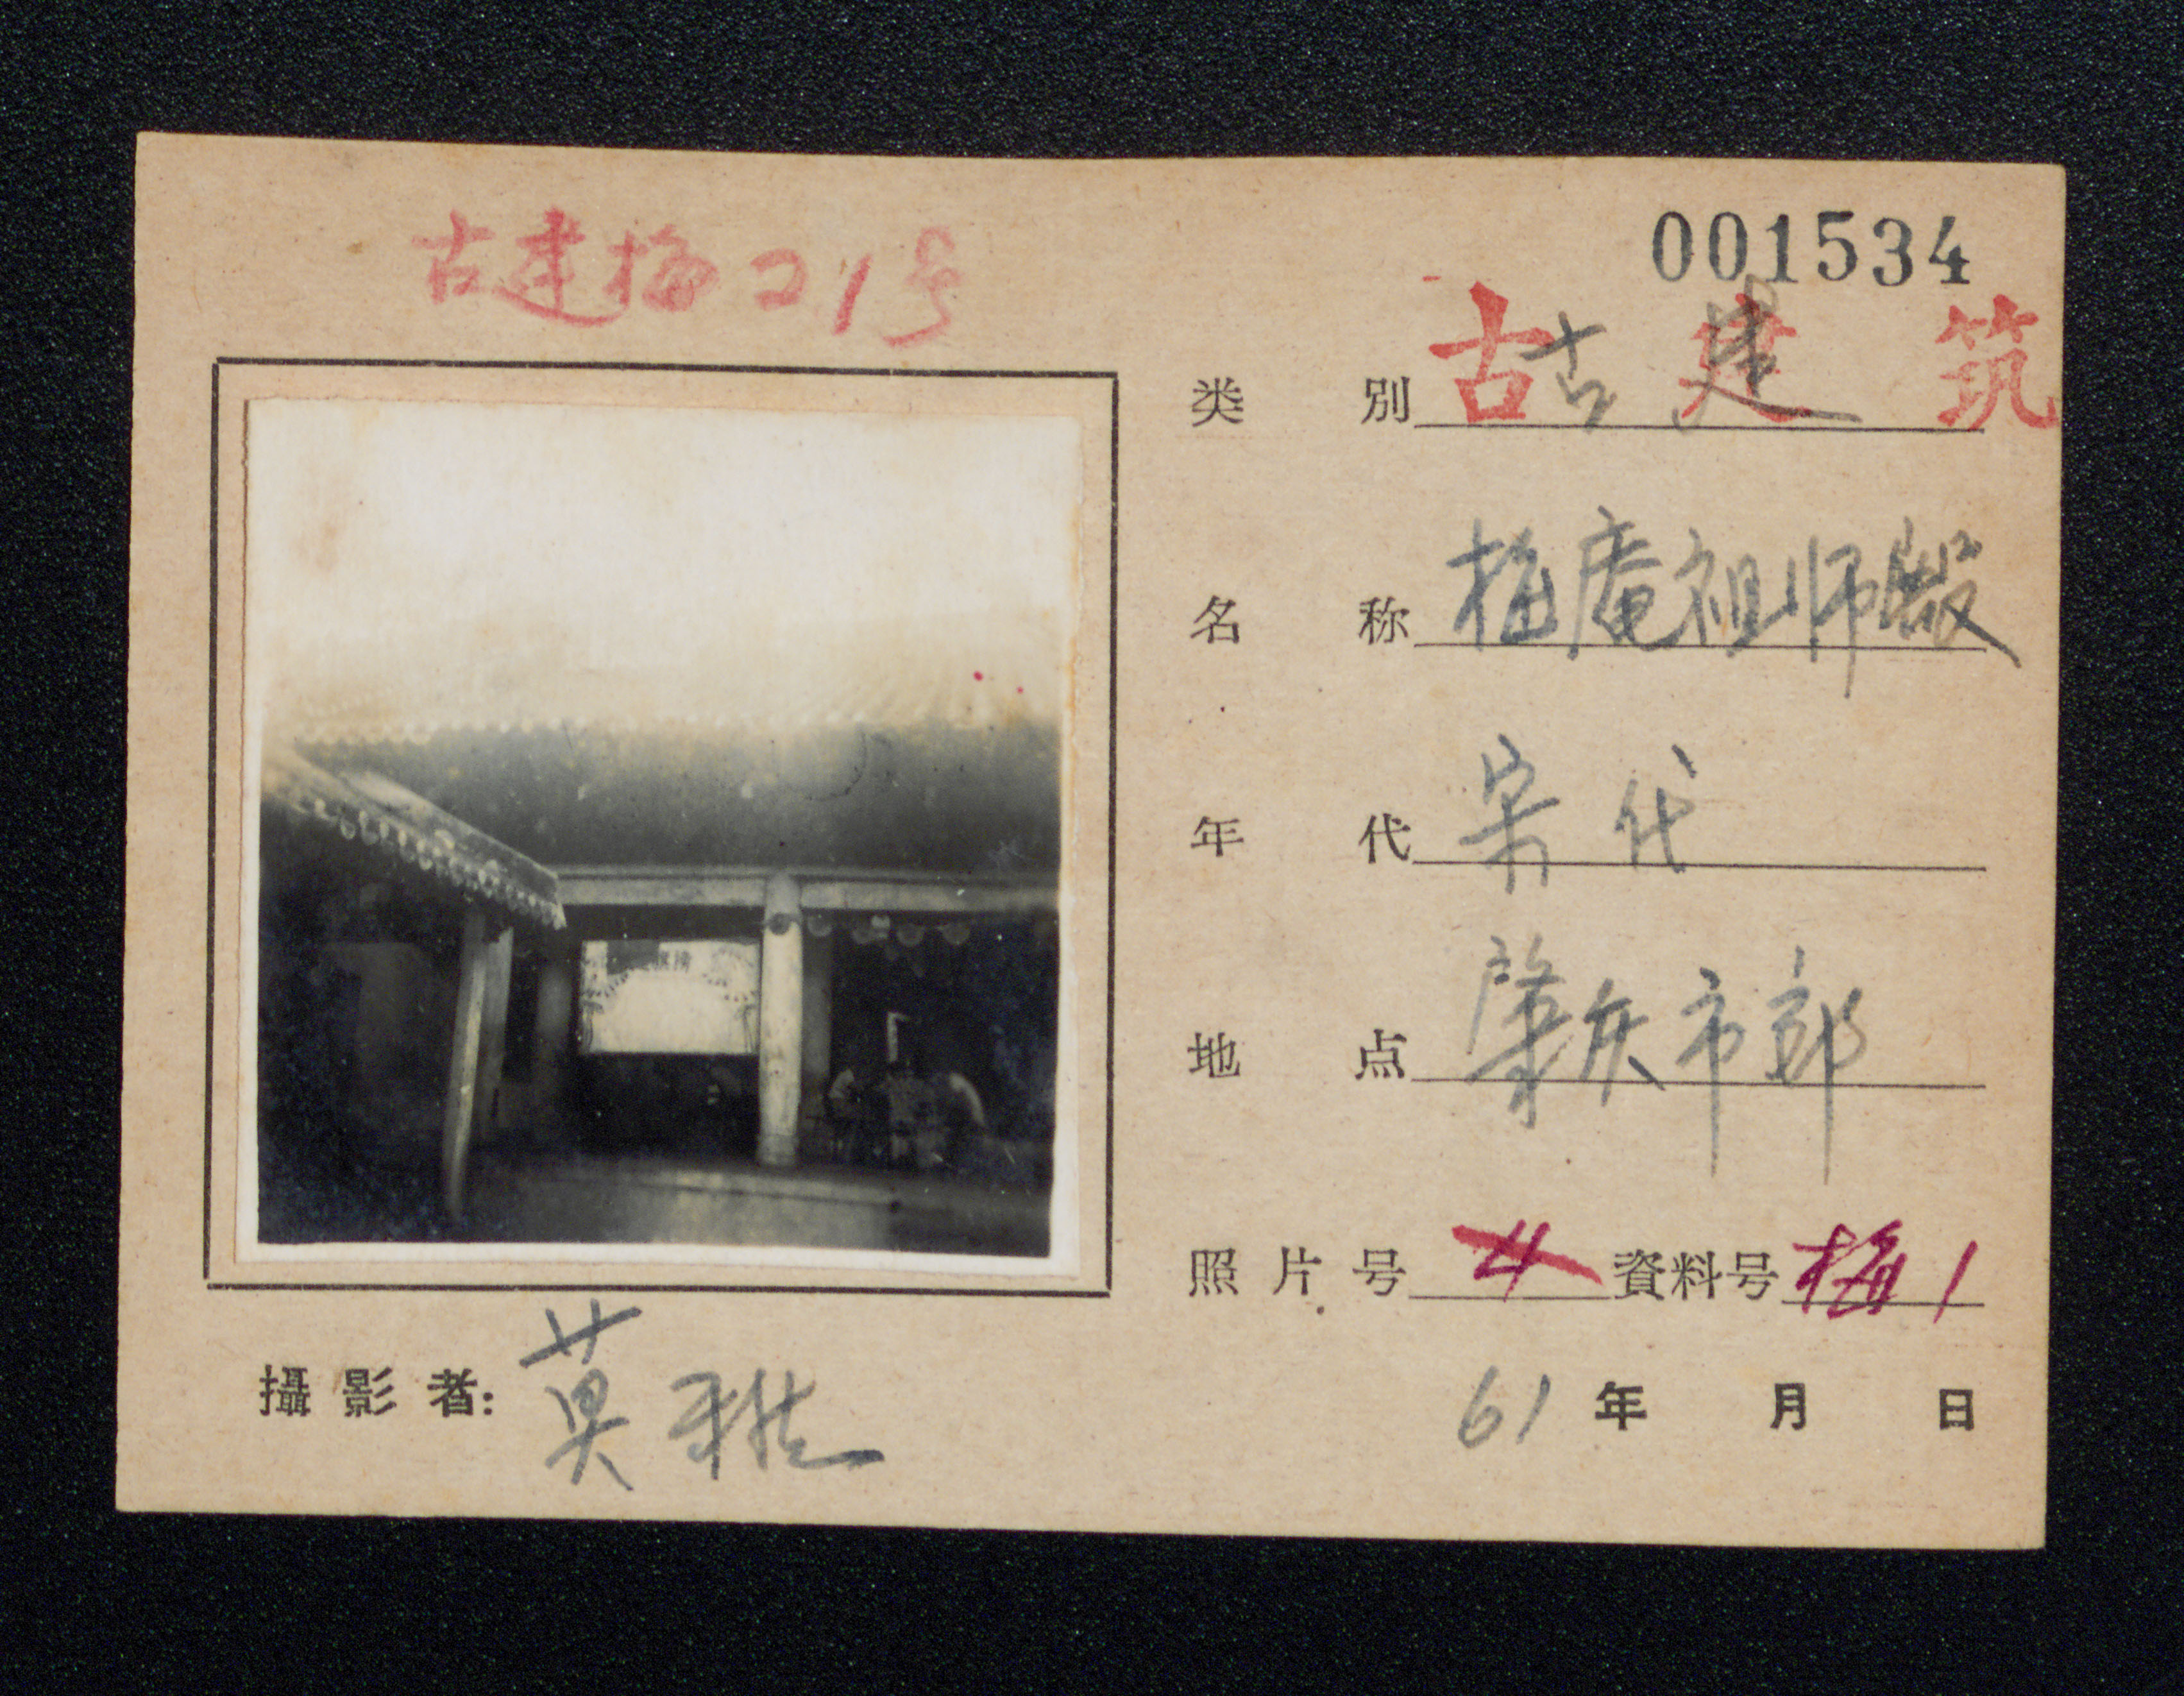 古建梅21号
001534
类别 古建筑 古建
名称 梅庵祖师殿
年代 宋代
地点 肇庆市郊
照片号 4 資料号 梅1
攝影者: 莫稚
61年 月 日